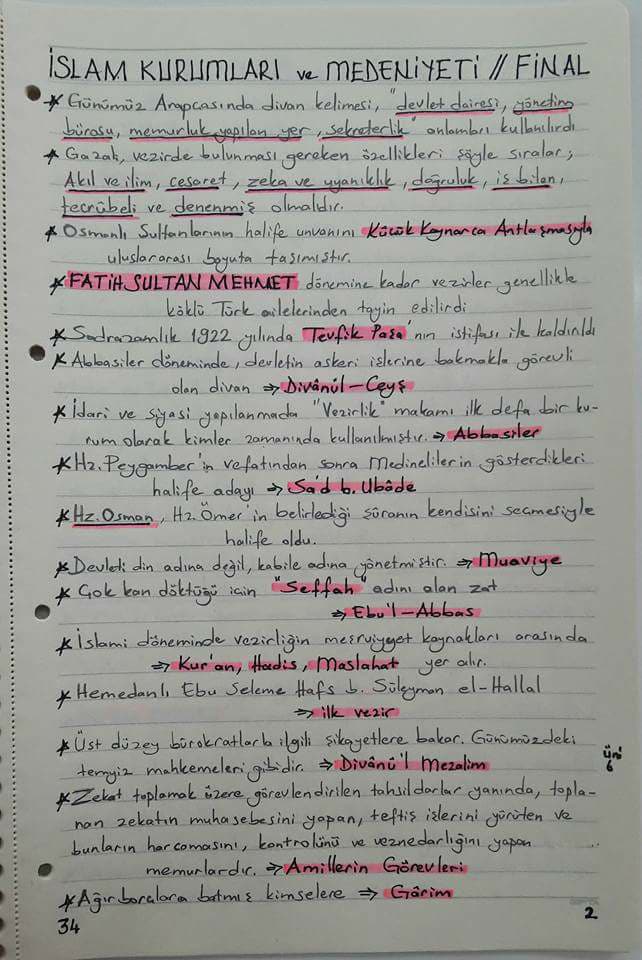 İSLAM KURUMLARI ve MEDENİYETİ // FİNAL
* Günümüz Arapcasında divan kelimesi, "devlet dairesi, yönetim
bürosu, memurluk yapılan yer, sekreterlik" anlamları kullanılırdı
* Gazali, vezirde bulunması gereken özellikleri şöyle sıralar;
Akıl ve ilim, cesaret, zeka ve uyanıklık, doğruluk, iş bilen,
tecrübeli ve denenmiş olmaldır.
* Osmanlı Sultanlarının halife unvanını Küçük Kaynarca Antlaşmasıyla
uluslararası boyuta taşımıştır.
* FATİH SULTAN MEHMET dönemine kadar vezirler genellikle
köklü Türk ailelerinden tayin edilirdi
* Sadrazamlık 1922 yılında Tevfik Paşa'nın istifası ile kaldırıldı
* Abbasiler döneminde, devletin askeri işlerine bakmakla görevli
olan divan ⇒ Divânül-Ceyş
* İdari ve siyasi yapılanmada "Vezirlik" makamı ilk defa bir ku-
rum olarak kimler zamanında kullanılmıştır. ⇒ Abbasiler
* Hz. Peygamber'in vefatından sonra Medinelilerin gösterdikleri
halife adayı ⇒ Sa'd b. Ubâde
* Hz. Osman, Hz. Ömer'in belirlediği şûranın kendisini seçmesiyle
halife oldu.
* Devleti din adına değil, kabile adına yönetmiştir. ⇒ Muaviye
* Çok kan döktüğü için "Seffah" adını alan zat
⇒ Ebu'l-Abbas
* İslami döneminde vezirliğin meşruiyyet kaynakları arasında
⇒ Kur'an, Hadis, Maslahat yer alır.
* Hemedanlı Ebu Seleme Hafs b. Süleyman el-Hallal
⇒ ilk vezir
* Üst düzey bürokratlarla ilgili şikayetlere bakar. Günümüzdeki
temyiz mahkemeleri gibidir. ⇒ Divânü'l Mezalim
Üni
6
* Zekat toplamak üzere görevlendirilen tahsildarlar yanında, topla-
nan zekatın muhasebesini yapan, teftiş işlerini yürüten ve
bunların harcamasını, kontrolünü ve veznedarlığını yapan
memurlardır. ⇒ Amillerin Görevleri
* Ağır borçlara batmış kimselere ⇒ Gârim
34
2